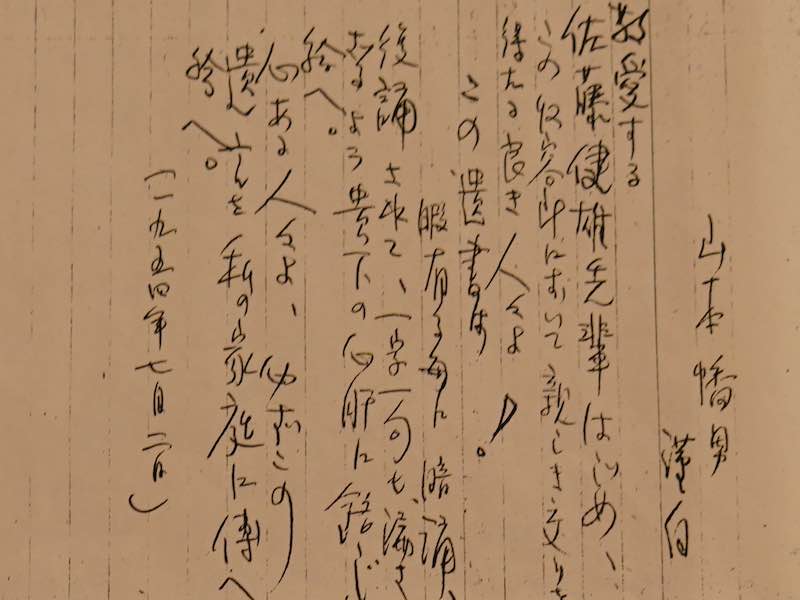 山本幡男
謹白
敬愛する
佐藤健雄先輩はじめ、
この収容所において親しき交りを
得たる良き人々よ!。
この遺書は
暇有る毎に暗誦、
復誦されて、一字一句も漏さ
ざるよう貴下の心肝に銘じ
給へ。
心ある人々よ、必ずこの
遺書を私の家庭に傳へ
給へ。
(一九五四年七月二日)